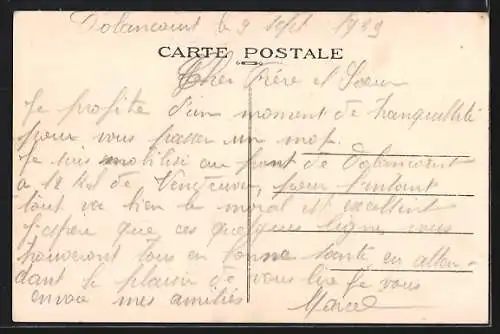 Dolancourt le 9 sept 1939
CARTE POSTALE
Cher Frère et Sœur
Je profite d'un moment de tranquillité
pour vous passer un mot.
Je suis mobilisé au pont de Dolancourt
a 12 Kil de Vendeuvre, pour l'instant
tout va bien le moral est excellent
j'espère que ces quelques lignes vous
trouveront tous en bonne santé en atten-
dant le plaisir de vous lire je vous
envoie mes amitiés Marcel